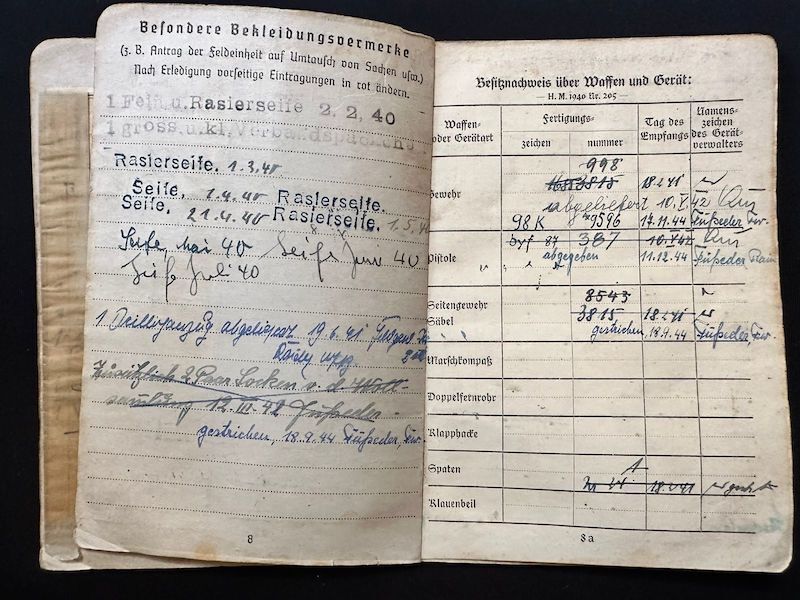 Besondere Bekleidungsvermerke
(z. B. Antrag der Feldeinheit auf Umtausch von Sachen usw.)
Nach Erledigung vorseitige Eintragungen in rot ändern.
1 Fein u. Rasierseife 2. 2. 40
1 gross. u. kl. Verbandspäckchen
Rasierseife. 1.3.40
Seife. 1.4.40 Rasierseife.
Seife. 21.4.40 Rasierseife. 1.5.4
Seife, Mai 40 Seife Juni 40
Seife Juli 40
1 Drillichanzug abgeliefert 19.6.41
Zusätzlich 2 Paar Socken v. d. Woll-
sammlung 12. III. 42 Fußeder
gestrichen, 18.9.44 Fußeder, Fw.
8
Besitznachweis über Waffen und Gerät:
— H. M. 1940 Nr. 205 —
Waffen- oder Gerätart
Fertigungs-
zeichen
nummer
Tag des Empfangs
Namens- zeichen des Gerät- verwalters
998
Gewehr 3815 18.2.41
abgeliefert 10.V.42
98 K 9596 17.11.44 Fußeder Fw.
byf 87 387 10.V.42
Pistole abgegeben 11.12.44 Fußeder
8543
Seitengewehr
Säbel 3815 18.2.41
gestrichen, 18.9.44 Fußeder, Fw.
Marschkompaß
Doppelfernrohr
Klapphacke
Spaten 1
18.2.41
Klauenbeil
8a